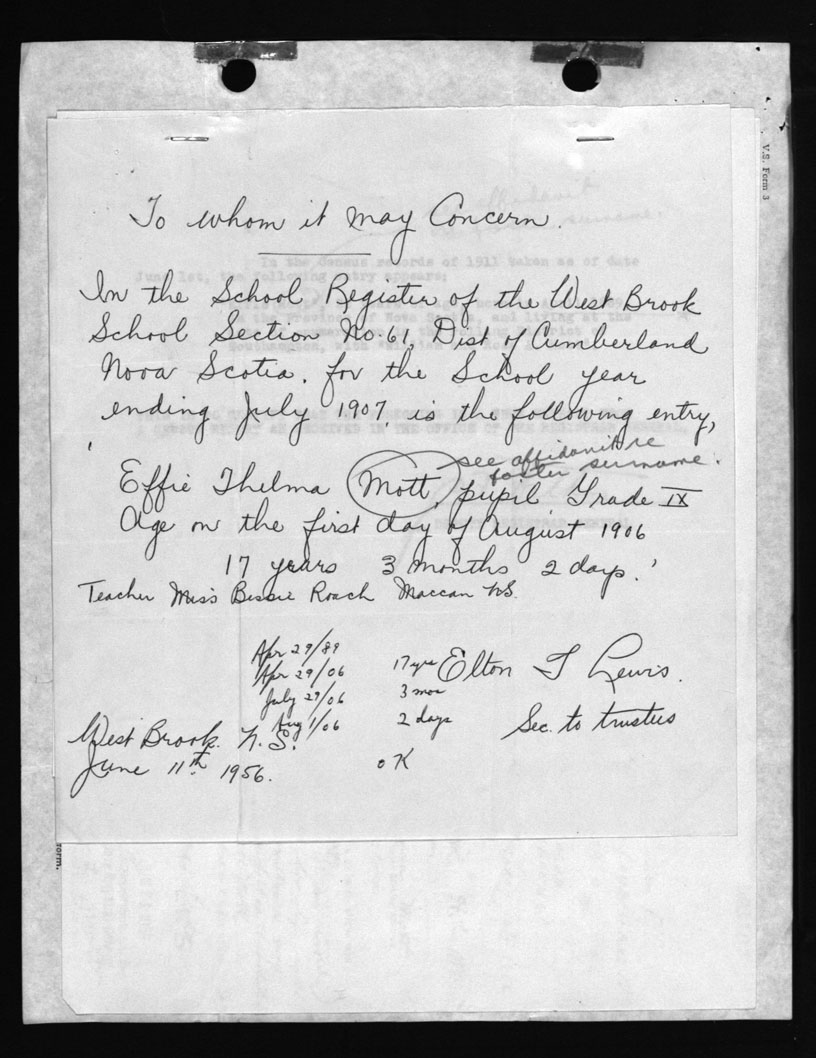 V.S. Form 3
To whom it may Concern.
In the Census records of 1911 taken as of date
June 1st, the following entry appears:
In the School Register of the West Brook
School Section No. 61, Dist of Cumberland
Nova Scotia, for the School year
ending July 1907, is the following entry,
see affidavit re
foster surname.
'Effie Thelma Mott, pupil Grade IX
Age on the first day of August 1906
17 years 3 months 2 days.'
Teacher Miss Bessie Roach Maccan N.S.
Apr 29/89
Apr 29/06 17 yrs
July 29/06 3 mos
Aug 1/06 2 days
OK
Elton T Lewis.
Sec. to trustees
West Brook. N.S.
June 11th 1956.
form.